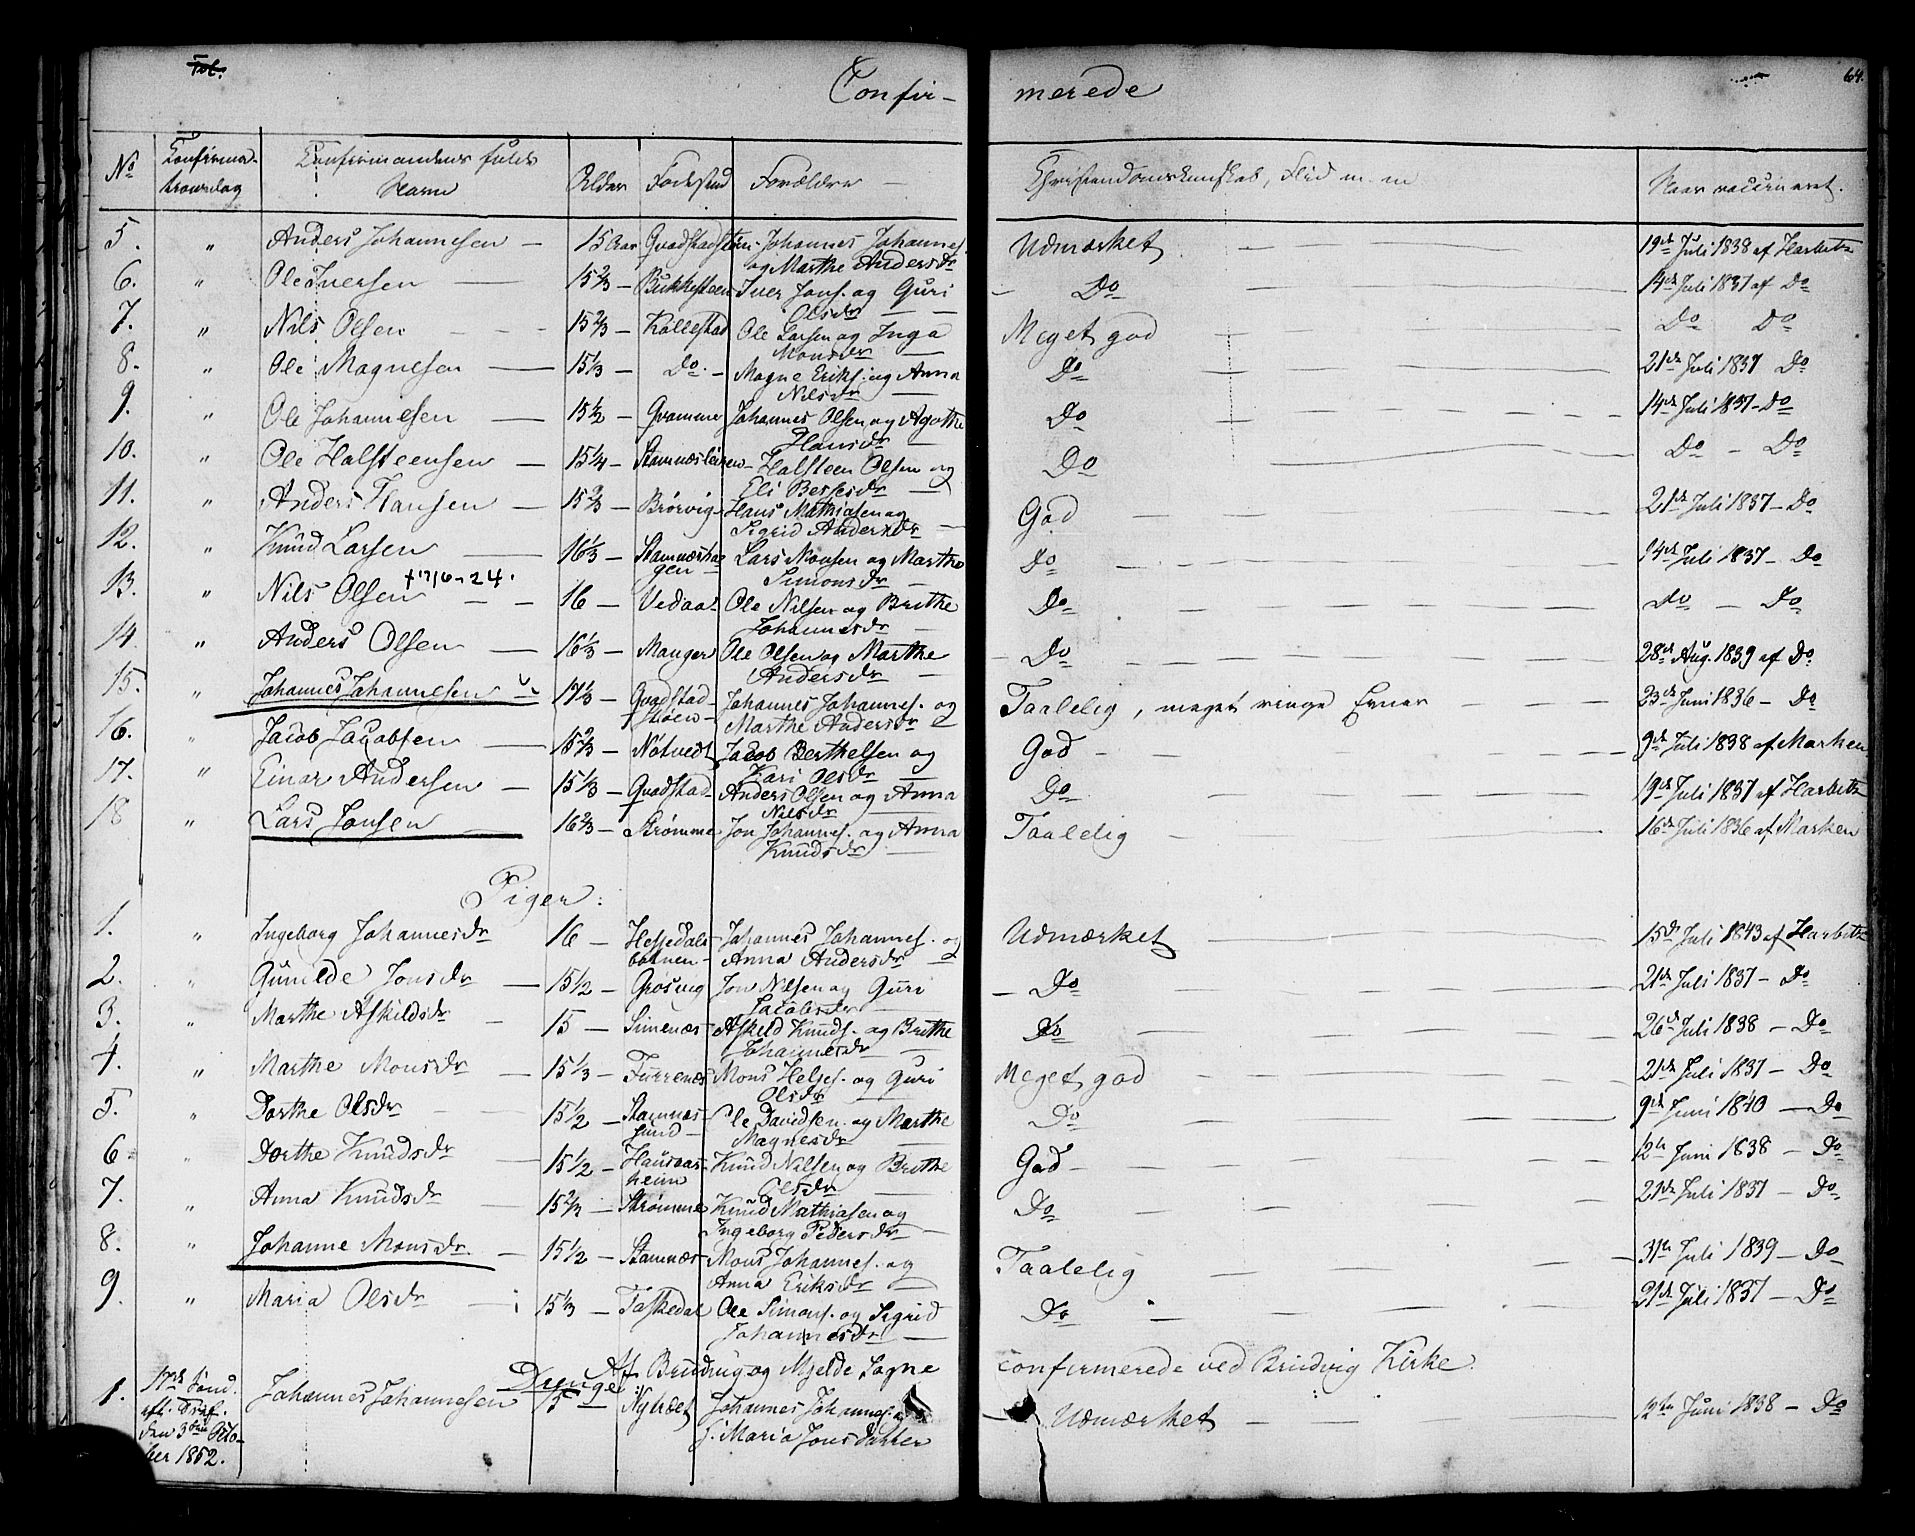 Fol.
Confir- merede
64.
No Confirma- Confirmandens fulde Alder Fødested Forældre Christendomskundskab, Flid m. m Naar vaccineret.
tionsdag Navn
5. " Anders Johannesen — 15 Aar Qvadstadstøen Johannes Johannes. Udmærket — 19de Juli 1838 af Harbitz
og Marthe Andersdr
6. " Ole Iversen — 15 2/3 — Bukkesteen Iver Jons. og Guri — Do — 14de Juli 1837 af Do
Olsdr
7. " Nils Olsen — 15 2/3 — Kallestad Ole Larsen og Inga Meget god — Do Do
Monsdr
8. " Ole Magnesen — 15 1/3 — Do. — Magne Eriks. og Anna Do — 21de Juli 1837 Do
Nilsdr
9. " Ole Johannesen — 15 1/2 — Qvamme Johannes Olsen og Agathe Do — 14de Juli 1837 - Do
Hansdr
10. " Ole Halsteensen — 15 1/4 — Stamnesleiren — Halsteen Olsen og Do — Do — Do
Eli Bessesdr
11. " Anders Hansen — 15 2/3 — Brørvig — Hans Mathiasen og God — 21de Juli 1837 — Do
Sigrid Andersdr
12. " Knud Larsen — 16 1/3 — Stamneshagen Lars Monsen og Marthe Do — 14de Juli 1837 — Do
Simonsdr
13. " Nils Olsen + 17/6-24. — 16 — Vedaas Ole Nilsen og Brithe Do — Do — Do
Johannesdr
14. " Anders Olsen — 16 1/3 — Manger Ole Olsen og Marthe Do — 28de Aug. 1839 af Do
Andersdr
15. " Johannes Johannesen — 17 1/3 — Qvadstadstøen — Johannes Johannes. og Taalelig, meget ringe Evner — 23de Juni 1836 — Do
Marthe Andersdr
16. " Jacob Jacobsen — 15 2/3 — Nøtvedt Jacob Berthelsen og God — 9de Juli 1838 af Marken
Kari Olsdr
17. " Einar Andersen — 15 1/3 — Qvadstad Anders Olsen og Anna Do — 19de Juli 1837 af Harbitz
Nilsdr
18 " Lars Jonsen — 16 2/3 — Strømme Jon Johannes. og Anna Taalelig — 16de Juli 1836 af Marken
Knudsdr
Piger:
1. " Ingeborg Johannesdr 16 — Hessedalsbotnen — Johannes Johannes. og Udmærket — 15de Juli 1843 af Harbitz
Anna Andersdr
2. " Gunilde Jonsdr — 15 1/2 — Grøsing Jon Nilsen og Guri — Do — 21de Juli 1837 — Do
Jacobsdr
3. " Marthe Askildsdr — 15 — Simenæs Askild Knuds. og Brithe Do — 26de Juli 1838 — Do
Johannesdr
4. " Marthe Monsdr — 15 1/3 — Furrenæs Mons Helges. og Guri Meget god — 21de Juli 1837 — Do
Olsdr
5. " Dorthe Olsdr — 15 1/2 — Stamnessund — Ole Davidsen og Marthe Do — 9de Juni 1840 — Do
Magnesdr
6. " Dorthe Knudsdr — 15 1/2 — Hansaasheim Knud Nilsen og Brithe God — 12te Juni 1838 — Do
Olsdr
7. " Anna Knudsdr — 15 2/3 — Strømme Knud Mathiasen og Do — 21de Juli 1837 — Do
Ingeborg Pedersdr
8. " Johanne Monsdr. — 15 1/2 — Stamnæs Mons Johannes. og Taalelig — 31te Juli 1839 — Do
Anna Eriksdr
9. " Maria Olsdr — 15 1/3 — Taskedal Ole Simons. og Sigrid Do — 21de Juli 1837 — Do
Johannesdr
Af Brudvig og Mjelde Sogne confirmerede ved Brudvig Kirke.
Drenge:
1. 17de Sønd. Johannes Johannesen 15 — Nyhræt Johannes Johannes. og — Udmærket — 12te Juni 1838 — Do
eft. Tref. J. Maria Jonsdatter
den 3die Octo-
ber 1852.